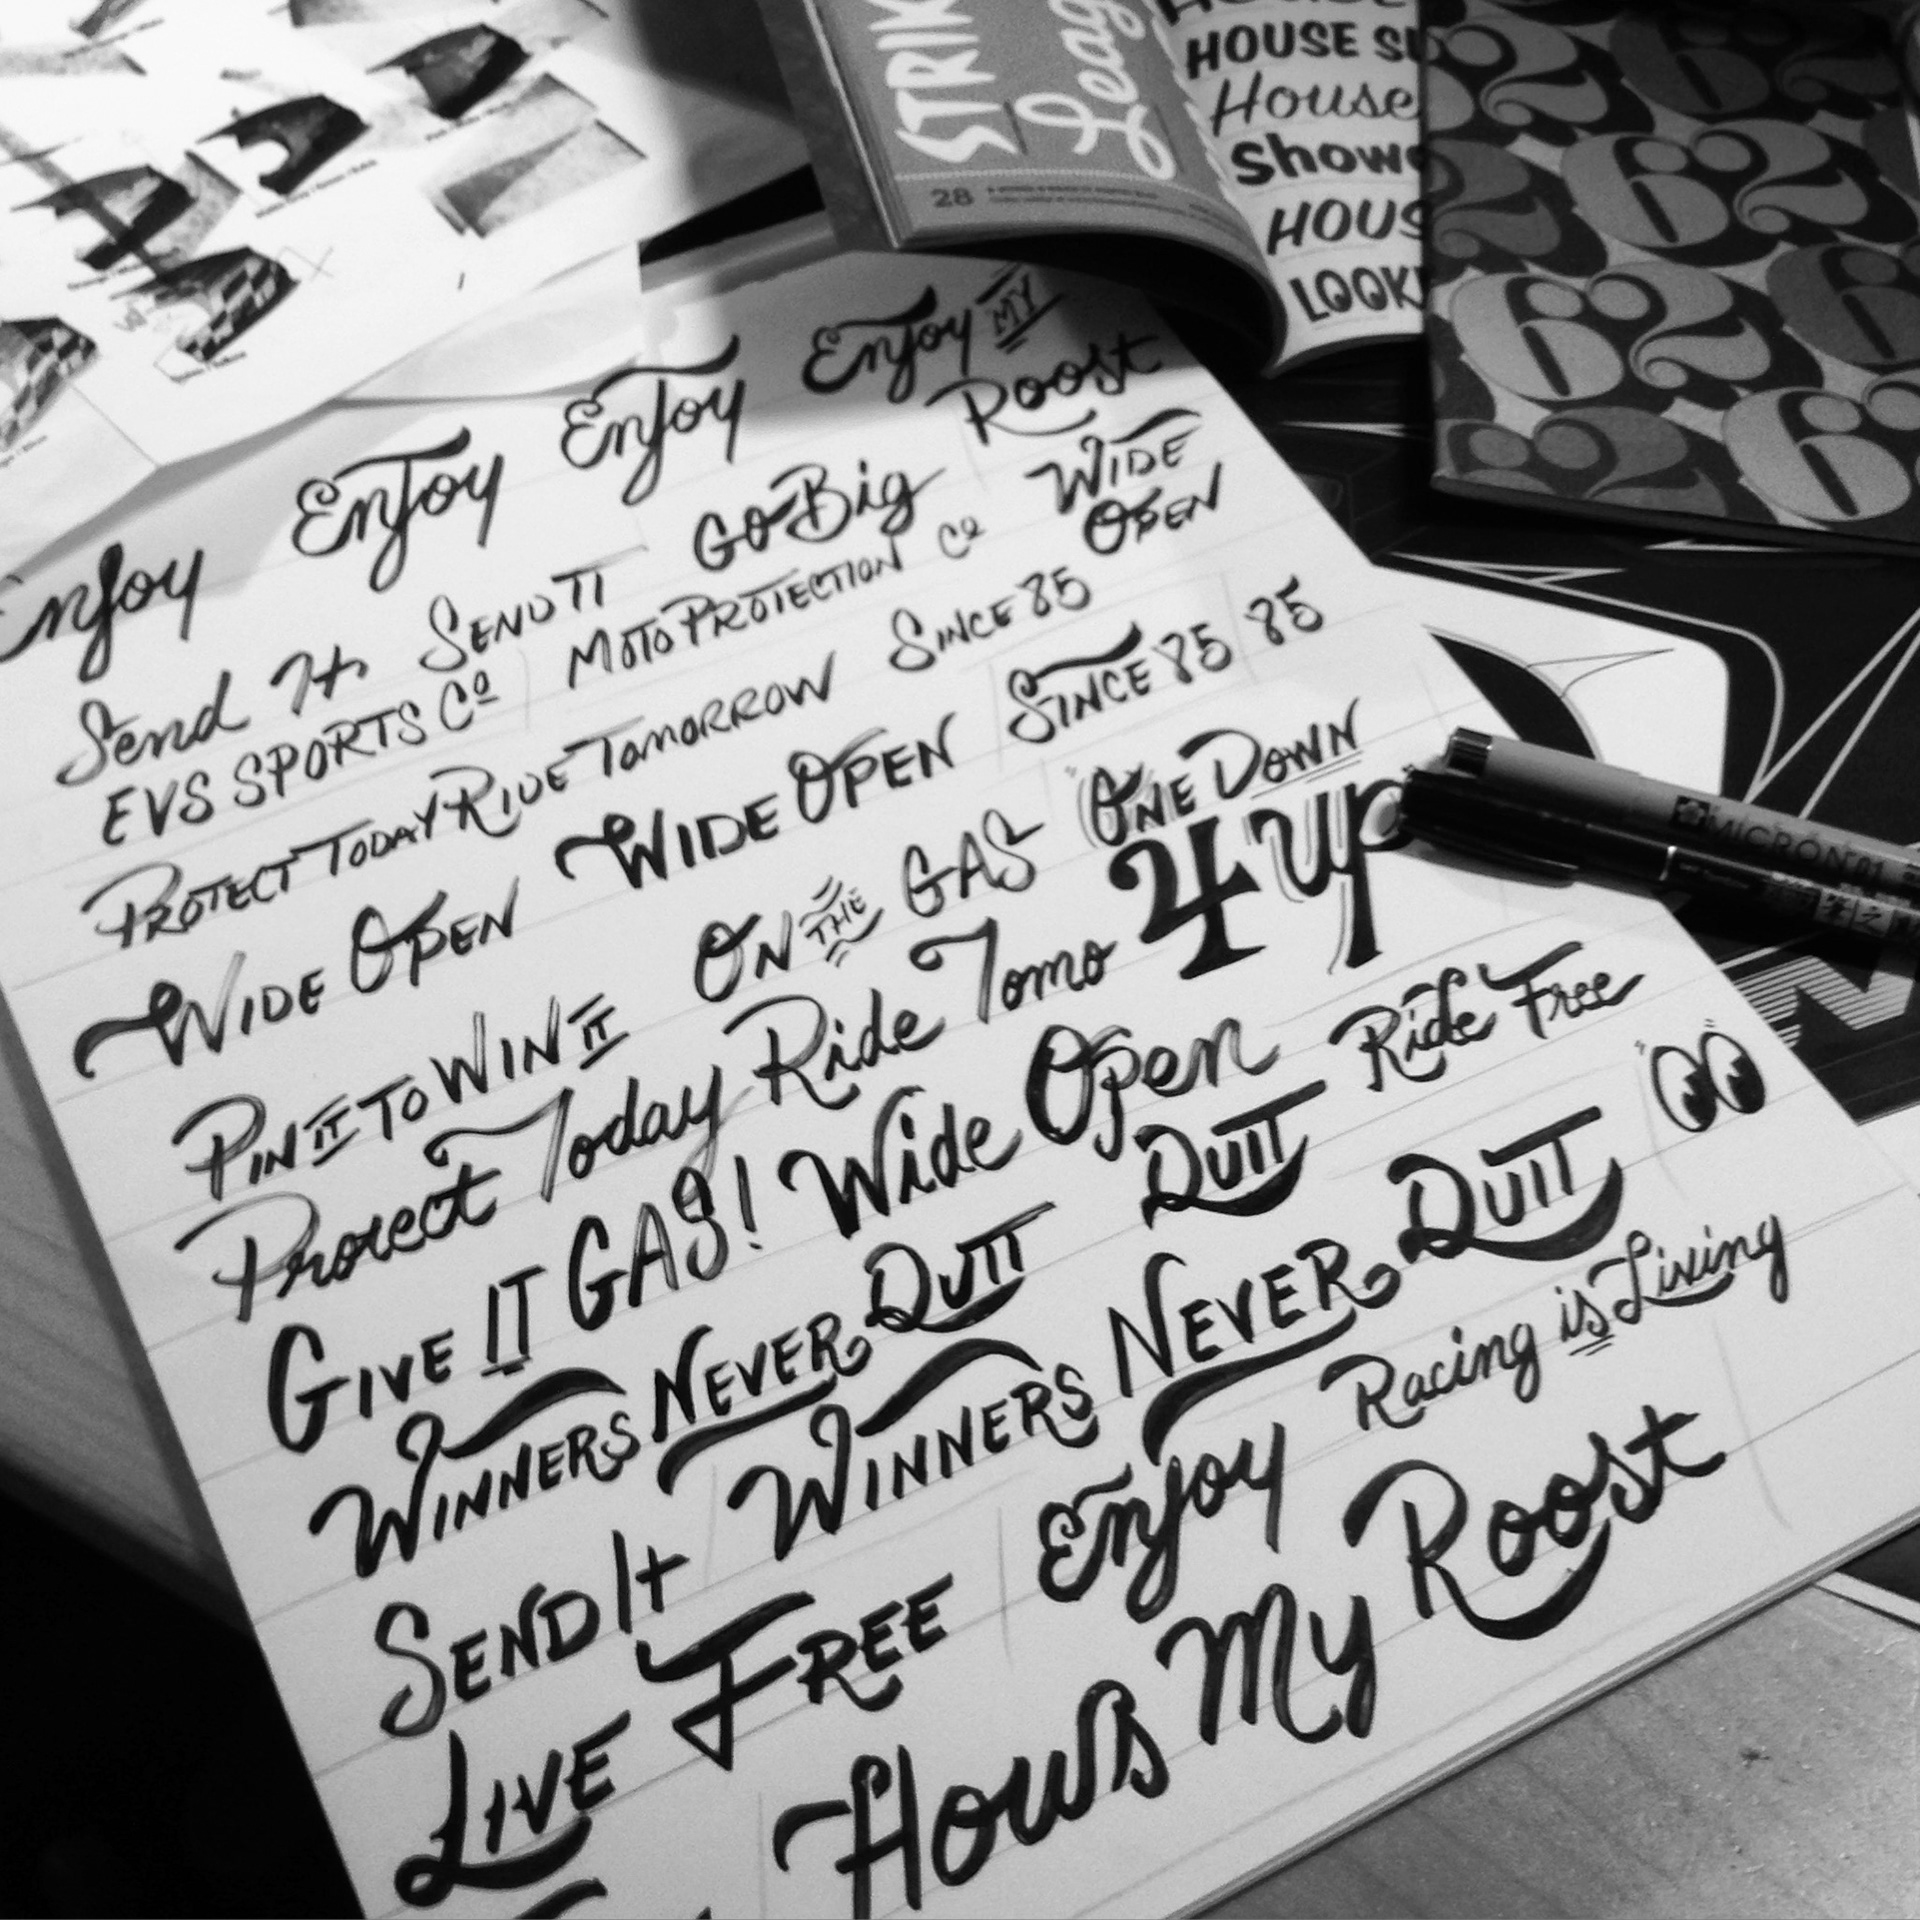 STRIK
Leag
28
HOUSE SU
House
Show
HOUS
LOOK
62 62
62
62
6
Enjoy Enjoy Enjoy Enjoy MY
Roost
Send It SEND IT GO Big WIDE
OPEN
EVS SPORTS Co MOTO PROTECTION Co
PROTECT TODAY RIDE TOMORROW SINCE 85
WIDE OPEN WIDE OPEN SINCE 85 85
PIN IT TO WIN IT ON THE GAS "ONE DOWN
4 UP
Protect Today Ride Tomo
GIVE IT GAS! Wide Open Ride Free
WINNERS NEVER QUIT QUIT
SEND It WINNERS NEVER QUIT
LIVE FREE Enjoy Racing is Living
Hows My Roost
MICRON 01